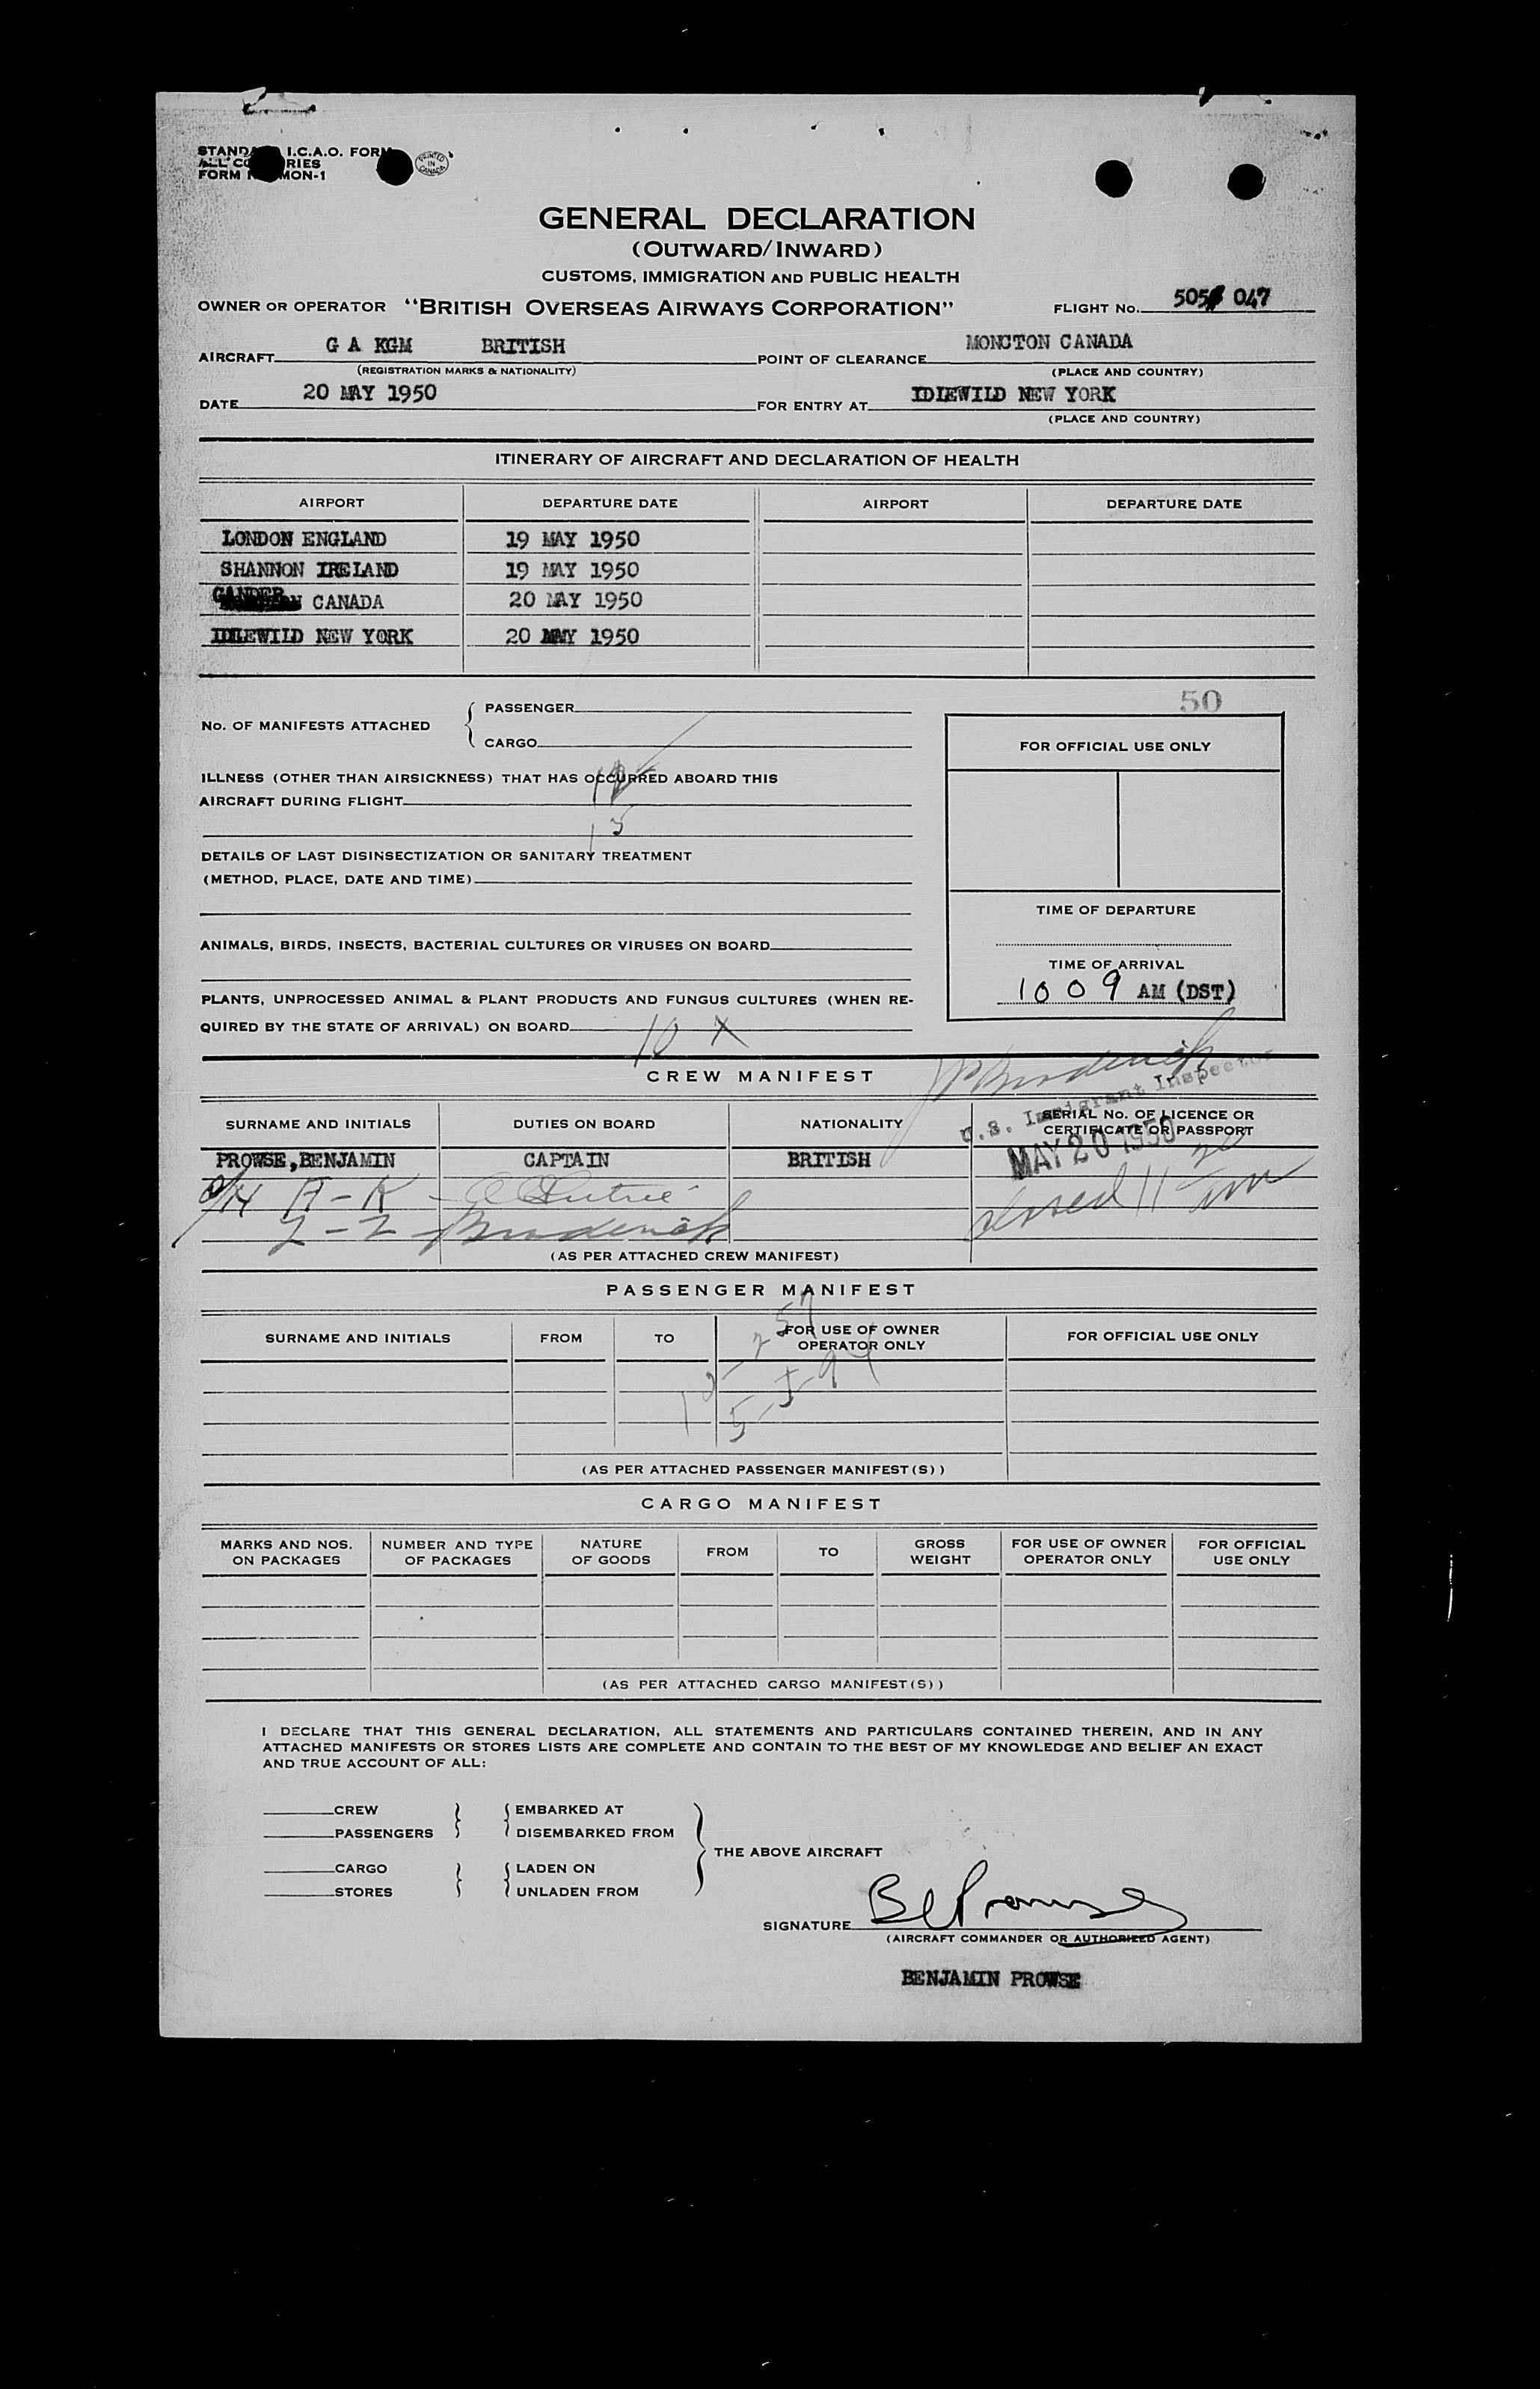 STANDA I.C.A.O. FORM
ALL CO RIES
FORM MON-1
PRINTED IN CANADA
GENERAL DECLARATION
(OUTWARD/INWARD)
CUSTOMS, IMMIGRATION AND PUBLIC HEALTH
OWNER OR OPERATOR "BRITISH OVERSEAS AIRWAYS CORPORATION" FLIGHT No. 505 047
AIRCRAFT G A KGM BRITISH POINT OF CLEARANCE MONCTON CANADA
(REGISTRATION MARKS & NATIONALITY) (PLACE AND COUNTRY)
DATE 20 MAY 1950 FOR ENTRY AT IDLEWILD NEW YORK
(PLACE AND COUNTRY)
ITINERARY OF AIRCRAFT AND DECLARATION OF HEALTH
AIRPORT DEPARTURE DATE AIRPORT DEPARTURE DATE
LONDON ENGLAND 19 MAY 1950
SHANNON IRELAND 19 MAY 1950
GANDER CANADA 20 MAY 1950
IDLEWILD NEW YORK 20 MAY 1950
50
No. OF MANIFESTS ATTACHED { PASSENGER
CARGO
FOR OFFICIAL USE ONLY
ILLNESS (OTHER THAN AIRSICKNESS) THAT HAS OCCURRED ABOARD THIS
AIRCRAFT DURING FLIGHT
15
DETAILS OF LAST DISINSECTIZATION OR SANITARY TREATMENT
(METHOD, PLACE, DATE AND TIME)
TIME OF DEPARTURE
ANIMALS, BIRDS, INSECTS, BACTERIAL CULTURES OR VIRUSES ON BOARD
TIME OF ARRIVAL
10 09 AM (DST)
PLANTS, UNPROCESSED ANIMAL & PLANT PRODUCTS AND FUNGUS CULTURES (WHEN RE-
QUIRED BY THE STATE OF ARRIVAL) ON BOARD
10 X
CREW MANIFEST
U.S. Immigrant Inspector
SURNAME AND INITIALS DUTIES ON BOARD NATIONALITY SERIAL No. OF LICENCE OR
CERTIFICATE OR PASSPORT
MAY 20 1950
PROWSE,BENJAMIN CAPTAIN BRITISH
A - K
Broderick
(AS PER ATTACHED CREW MANIFEST)
PASSENGER MANIFEST
SURNAME AND INITIALS FROM TO FOR USE OF OWNER
OPERATOR ONLY FOR OFFICIAL USE ONLY
(AS PER ATTACHED PASSENGER MANIFEST(S))
CARGO MANIFEST
MARKS AND NOS.
ON PACKAGES NUMBER AND TYPE
OF PACKAGES NATURE
OF GOODS FROM TO GROSS
WEIGHT FOR USE OF OWNER
OPERATOR ONLY FOR OFFICIAL
USE ONLY
(AS PER ATTACHED CARGO MANIFEST(S))
I DECLARE THAT THIS GENERAL DECLARATION, ALL STATEMENTS AND PARTICULARS CONTAINED THEREIN, AND IN ANY
ATTACHED MANIFESTS OR STORES LISTS ARE COMPLETE AND CONTAIN TO THE BEST OF MY KNOWLEDGE AND BELIEF AN EXACT
AND TRUE ACCOUNT OF ALL:
CREW EMBARKED AT
PASSENGERS DISEMBARKED FROM
THE ABOVE AIRCRAFT
CARGO LADEN ON
STORES UNLADEN FROM
SIGNATURE B Prowse
(AIRCRAFT COMMANDER OR AUTHORIZED AGENT)
BENJAMIN PROWSE